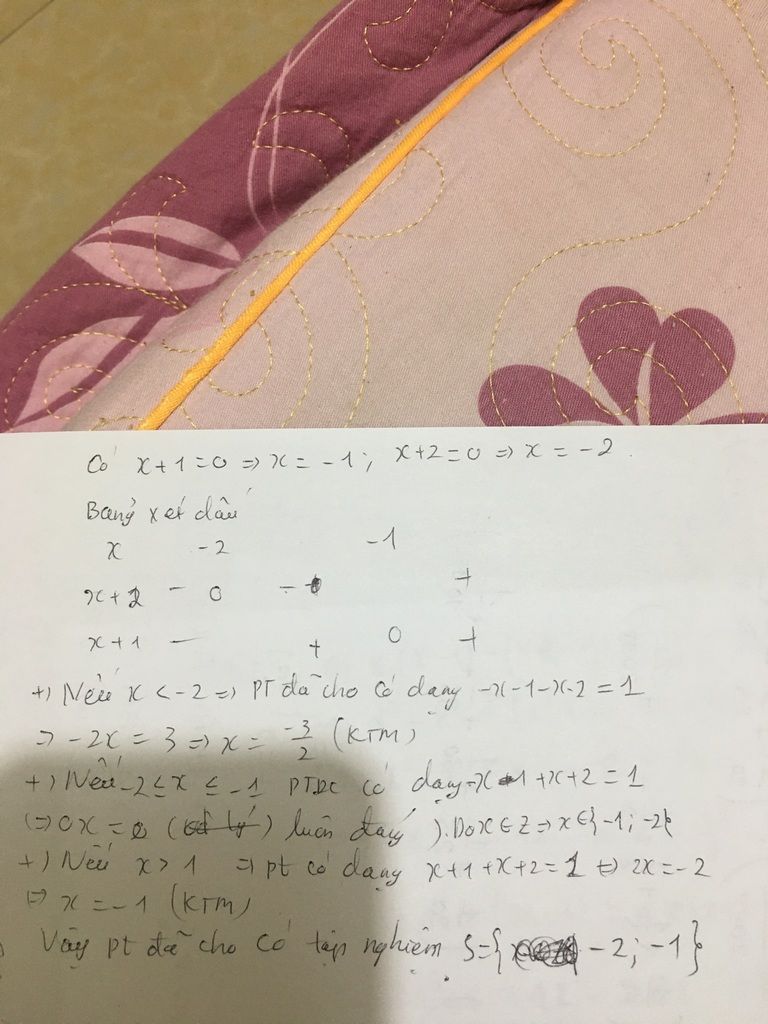 Có x+1=0 => x = -1; x+2=0 => x = -2.
Bảng xét dấu
x -2 -1
x+2 - 0 - +
x+1 - + 0 +
+) Nếu x < -2 => PT đã cho có dạng -x-1-x-2 = 1
=> -2x = 3 => x = -3/2 (KTM)
+) Nếu -2 ≤ x ≤ -1 PTĐC có dạng -x-1+x+2 = 1
(=> 0x = 0 ( ) luôn đúng ). Do x ∈ Z => x ∈ {-1; -2}
+) Nếu x > 1 => pt có dạng x+1+x+2 = 1 <=> 2x = -2
<=> x = -1 (KTM)
Vậy pt đã cho có tập nghiệm S={ -2; -1}.